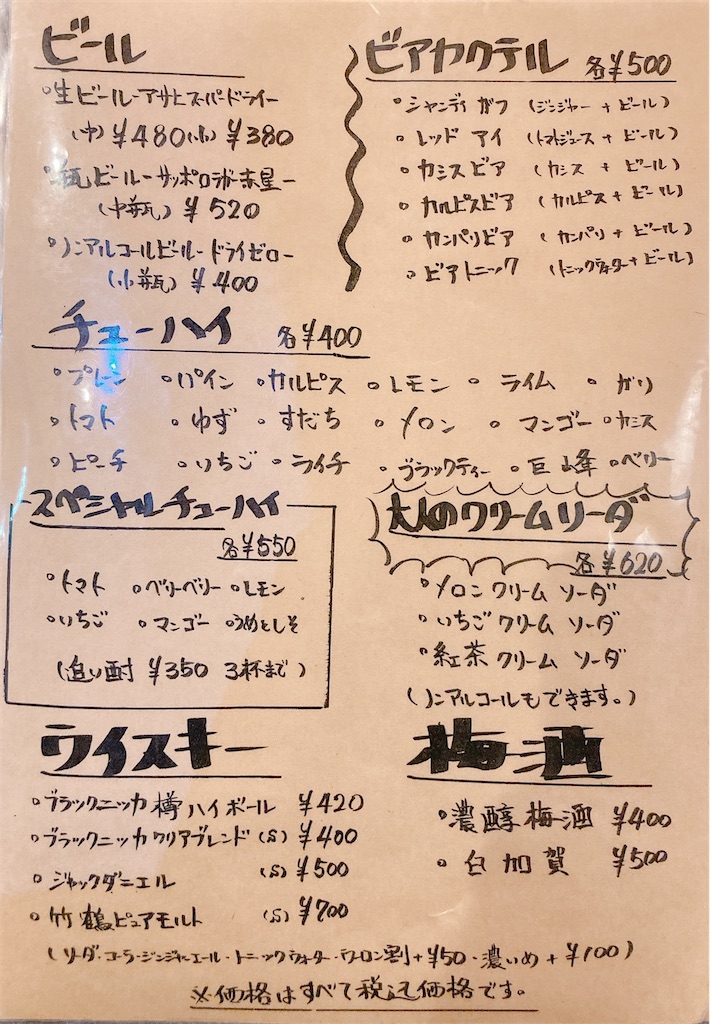 ビール
・生ビール-アサヒスーパードライ-
(中) ¥480 (小) ¥380
・瓶ビール-サッポロラガー赤星-
(中瓶) ¥520
・ノンアルコールビール-ドライゼロ-
(小瓶) ¥400
ビアカクテル 各¥500
・シャンディガフ (ジンジャー + ビール)
・レッド アイ (トマトジュース + ビール)
・カシスビア (カシス + ビール)
・カルピスビア (カルピス + ビール)
・カンパリビア (カンパリ + ビール)
・ビアトニック (トニックウォーター + ビール)
チューハイ 各¥400
・プレーン ・パイン ・カルピス ・レモン ・ライム ・ガリ
・トマト ・ゆず ・すだち ・メロン ・マンゴー ・カシス
・ピーチ ・いちご ・ライチ ・ブラックティー ・巨峰 ・ベリー
スペシャルチューハイ
各¥550
・トマト ・ベリーベリー ・レモン
・いちご ・マンゴー ・うめとしそ
(追い酎 ¥350 3杯まで)
大人のクリームソーダ
各¥620
・メロンクリームソーダ
・いちごクリームソーダ
・紅茶クリームソーダ
(ノンアルコールもできます。)
ウイスキー
・ブラックニッカ 樽ハイボール ¥420
・ブラックニッカ クリアブレンド (S) ¥400
・ジャックダニエル (S) ¥500
・竹鶴ピュアモルト (S) ¥700
(ソーダ・コーラ・ジンジャーエール・トニックウォーター・ウーロン割+¥50・濃いめ+¥100)
梅酒
・濃醇梅酒 ¥400
・白加賀 ¥500
※価格はすべて税込価格です。